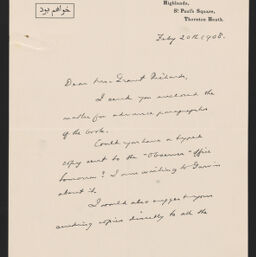 خواهم بود
Highlands,
St Paul's Square,
Thornton Heath.
Feby 20th 1908.
Dear Mr. Grant Richards,
I send you enclosed the
matter for advance paragraphs
of the book.
Could you have a typed
copy sent to the "Observer" office
tomorrow? I am writing to Garvin
about it.
I would also suggest your
sending copies directly to all the